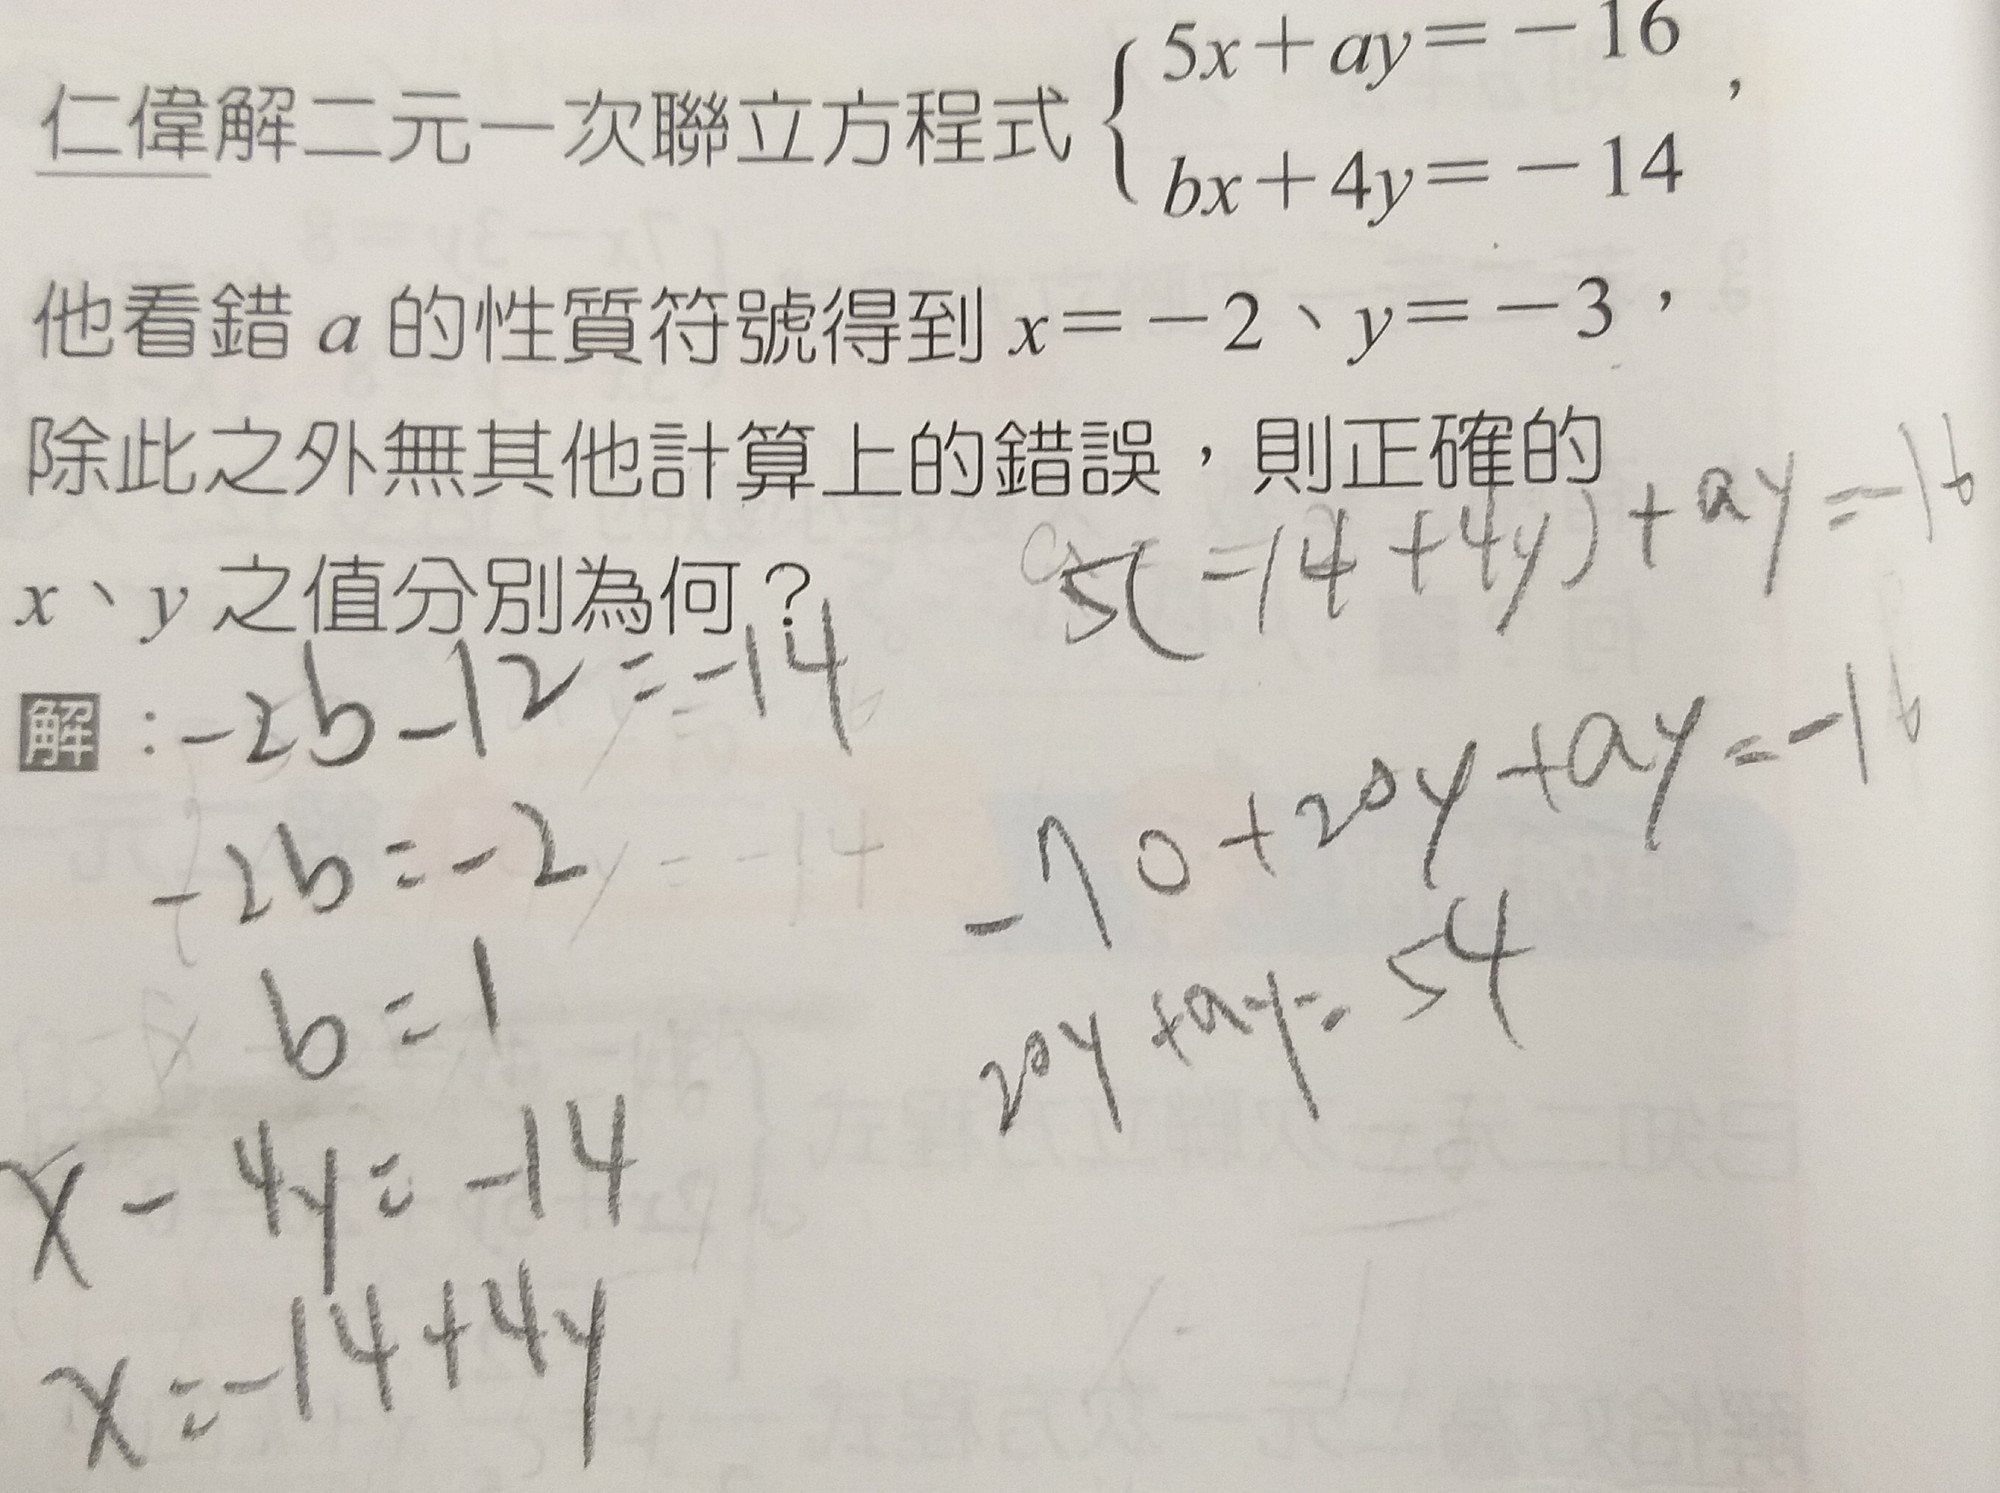 仁偉解二元一次聯立方程式 { 5x＋ay＝－16
bx＋4y＝－14 ，
他看錯 a 的性質符號得到 x＝－2、y＝－3，
除此之外無其他計算上的錯誤，則正確的
x、y 之值分別為何？
解：-2b-12=-14
-2b=-2
b=1
x-4y=-14
x=-14+4y
5(-14+4y)+ay=-16
-70+20y+ay=-16
20y+ay=54